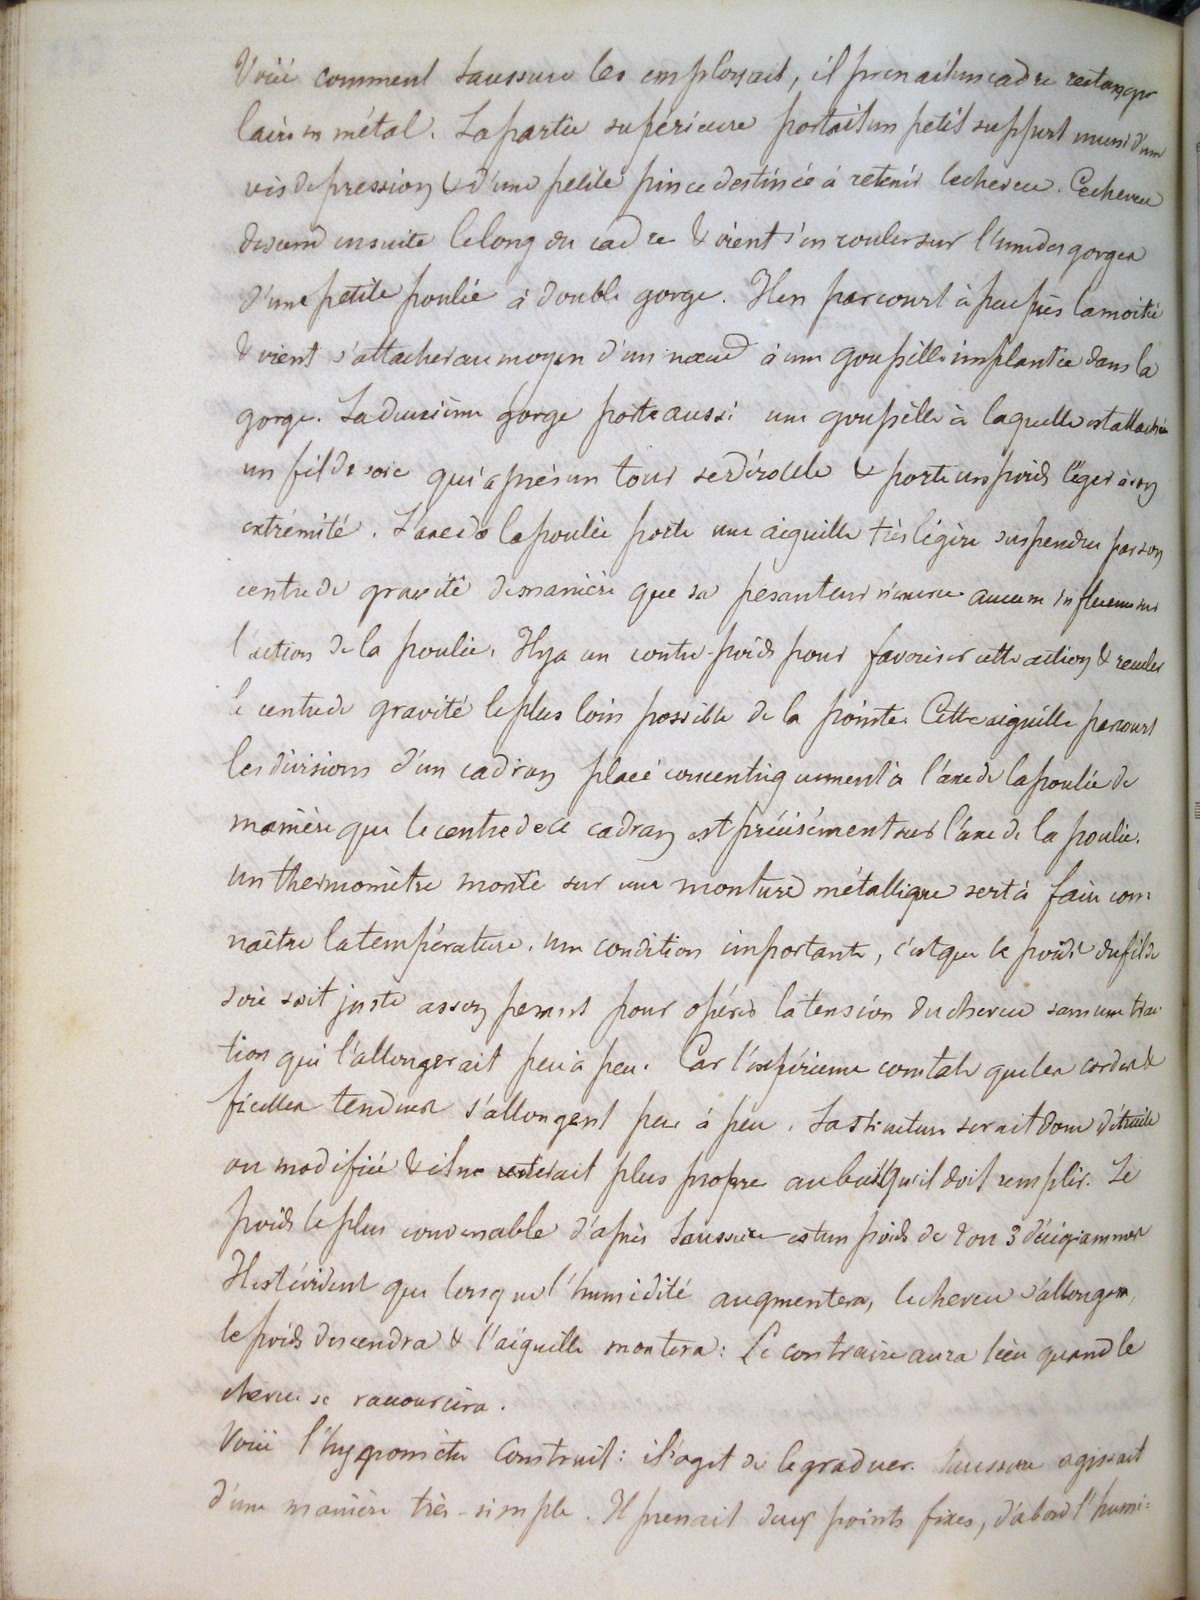 Voici comment Saussure les employait, il prenait un cadre rectangu
laire en métal. La partie supérieure portait un petit support muni d'une
vis de pression & d'une petite pince destinée à retenir le cheveu. Ce cheveu
descend ensuite le long du cadre & vient s'enrouler sur l'une des gorges
d'une petite poulie à double gorge. Il en parcourt à peu près la moitié
& vient s'attacher au moyen d'un nœud à une goupille implantée dans la
gorge. La deuxième gorge porte aussi une goupille à laquelle est attaché
un fil de soie qui après un tour se déroule & porte un poids léger à son
extrémité. L'axe de la poulie porte une aiguille très légère suspendue par son
centre de gravité de manière que sa pesanteur n'exerce aucune influence sur
l'action de la poulie. Il y a un contre-poids pour favoriser cette action & reculer
le centre de gravité le plus loin possible de la pointe. Cette aiguille parcourt
les divisions d'un cadran placé concentriquement à l'axe de la poulie de
manière que le centre de ce cadran est précisément sur l'axe de la poulie.
un thermomètre monté sur une monture métallique sert à faire con
naître la température. une condition importante, c'est que le poids du fil de
soie soit juste assez pesant pour opérer la tension du cheveu sans une trac
tion qui l'allongerait peu à peu. Car l'expérience constate que les cordes &
ficelles tendues s'allongent peu à peu. La structure serait donc détruite
ou modifiée & il ne resterait plus propre au but qu'il doit remplir. Le
poids le plus convenable d'après Saussure est un poids de 2 ou 3 décigrammes
Il est évident que lorsque l'humidité augmentera, le cheveu s'allongera,
le poids descendra & l'aiguille montera: Le contraire aura lieu quand le
cheveu se raccourcira.
Voici l'hygromètre construit: il s'agit de le graduer. Saussure agissait
d'une manière très-simple. Il prenait deux points fixes, d'abord l'humi=